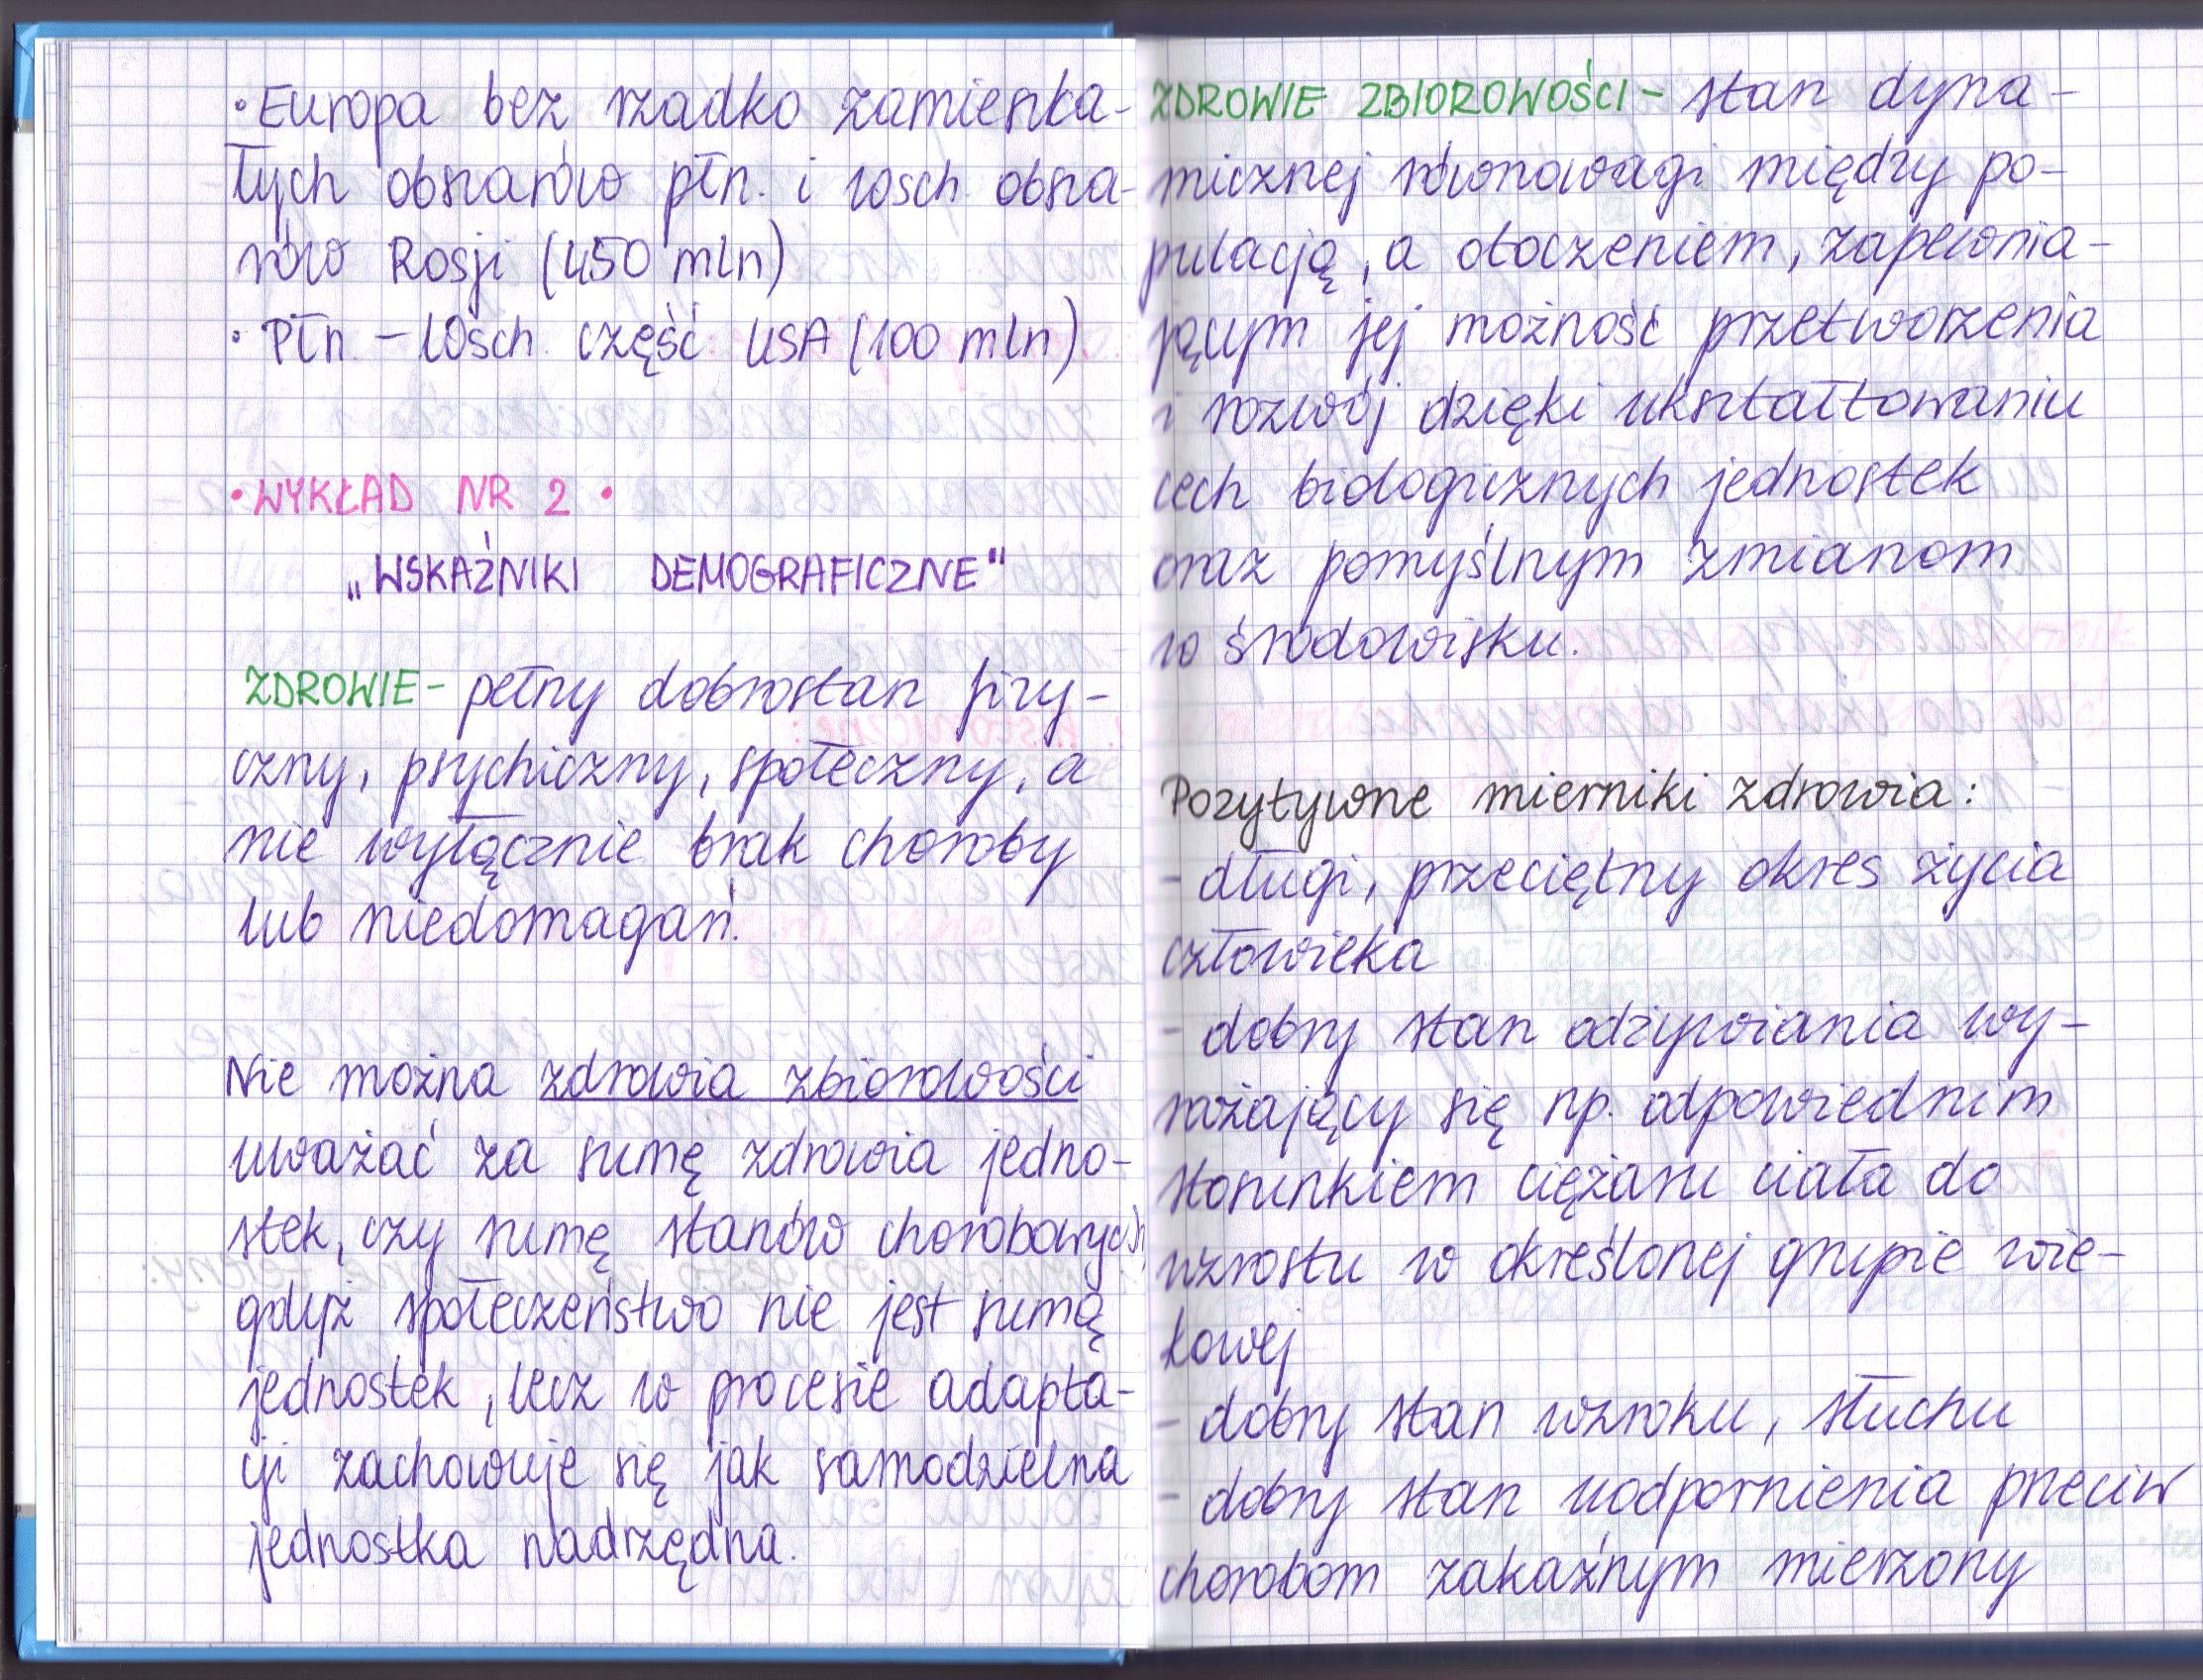 • Europa bez rzadko zamieszka-
łych obszarów płn. i wsch. obsza-
rów Rosji (450 mln)
• Płn. – Wsch. część USA (100 mln)
• WYKŁAD NR 2 •
„WSKAŹNIKI DEMOGRAFICZNE"
ZDROWIE - pełny dobrostan fizy-
czny, psychiczny, społeczny, a
nie wyłącznie brak choroby
lub niedomagań.
Nie można zdrowia zbiorowości
uważać za sumę zdrowia jedno-
stek, czy sumę stanów chorobowych
gdyż społeczeństwo nie jest sumą
jednostek, lecz w procesie adapta-
cji zachowuje się jak samodzielna
jednostka nadrzędna.
ZDROWIE ZBIOROWOŚCI - stan dyna-
micznej równowagi między po-
pulacją, a otoczeniem, zapewnia-
jącym jej możność przetworzenia
i rozwój dzięki ukształtowaniu
cech biologicznych jednostek
oraz pomyślnym zmianom
w środowisku.
Pozytywne mierniki zdrowia:
- długi, przeciętny okres życia
człowieka
- dobry stan odżywiania wy-
rażający się np. odpowiednim
stosunkiem ciężaru ciała do
wzrostu w określonej grupie wie-
kowej
- dobry stan wzroku, słuchu
- dobry stan uodpornienia przeciw
chorobom zakaźnym mierzony